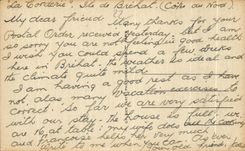 "La Corderie". Ile de Bréhat. (Côtes du Nord)
My dear friend, Many thanks for your
Postal Order received yesterday. But I am
so sorry you are not feeling in good health
I wish you could spend a few weeks
here in Bréhat. The weather is ideal and
the climate quite mild.
I am having a good rest as I have
not, alas many vacation exercises to
correct. So far we are very satisfied
with our stay. The house is full, we
are 16 at table; my wife does the
and Françoise helps very much
Write to me when you